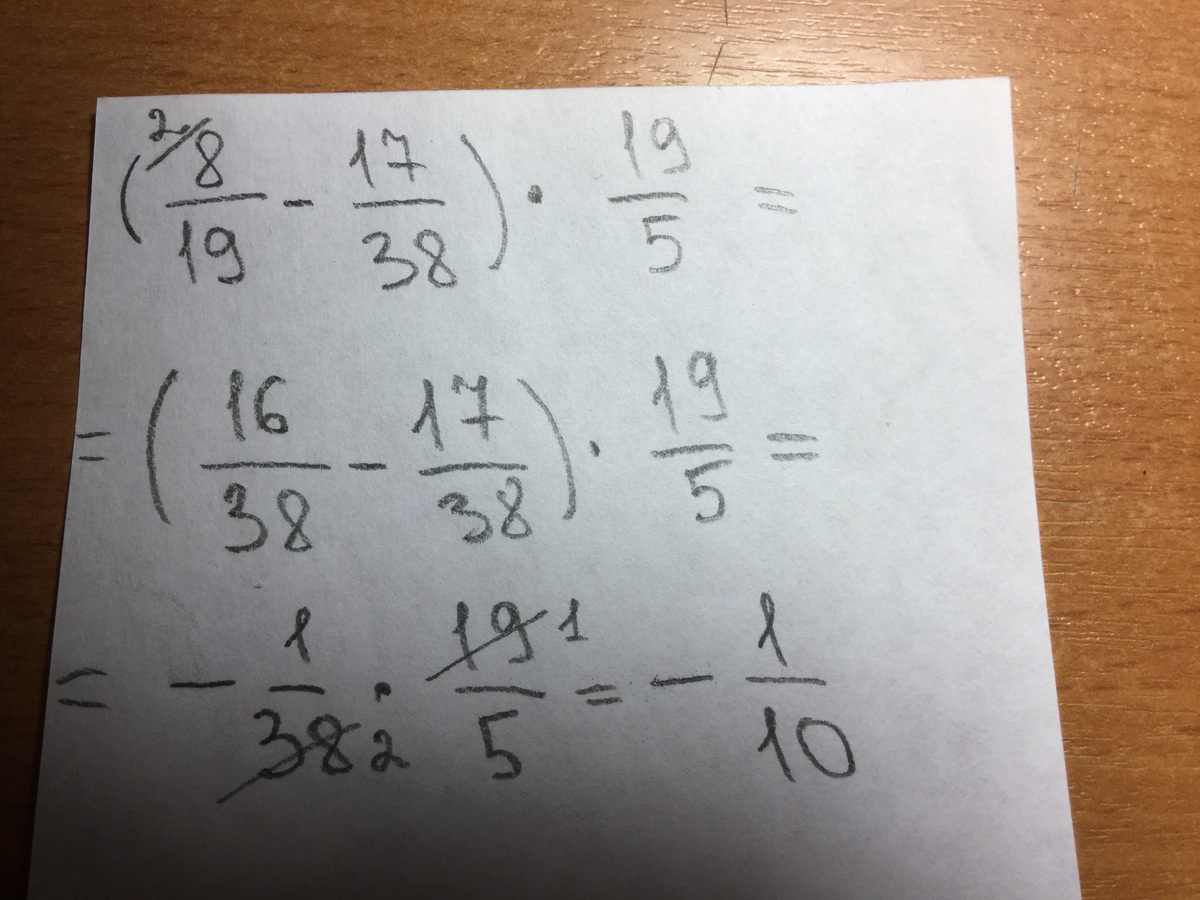 (²⁄8/19 - 17/38) · 19/5 =
= (16/38 - 17/38) · 19/5 =
= - 1/38 2 · 19 1/5 = - 1/10